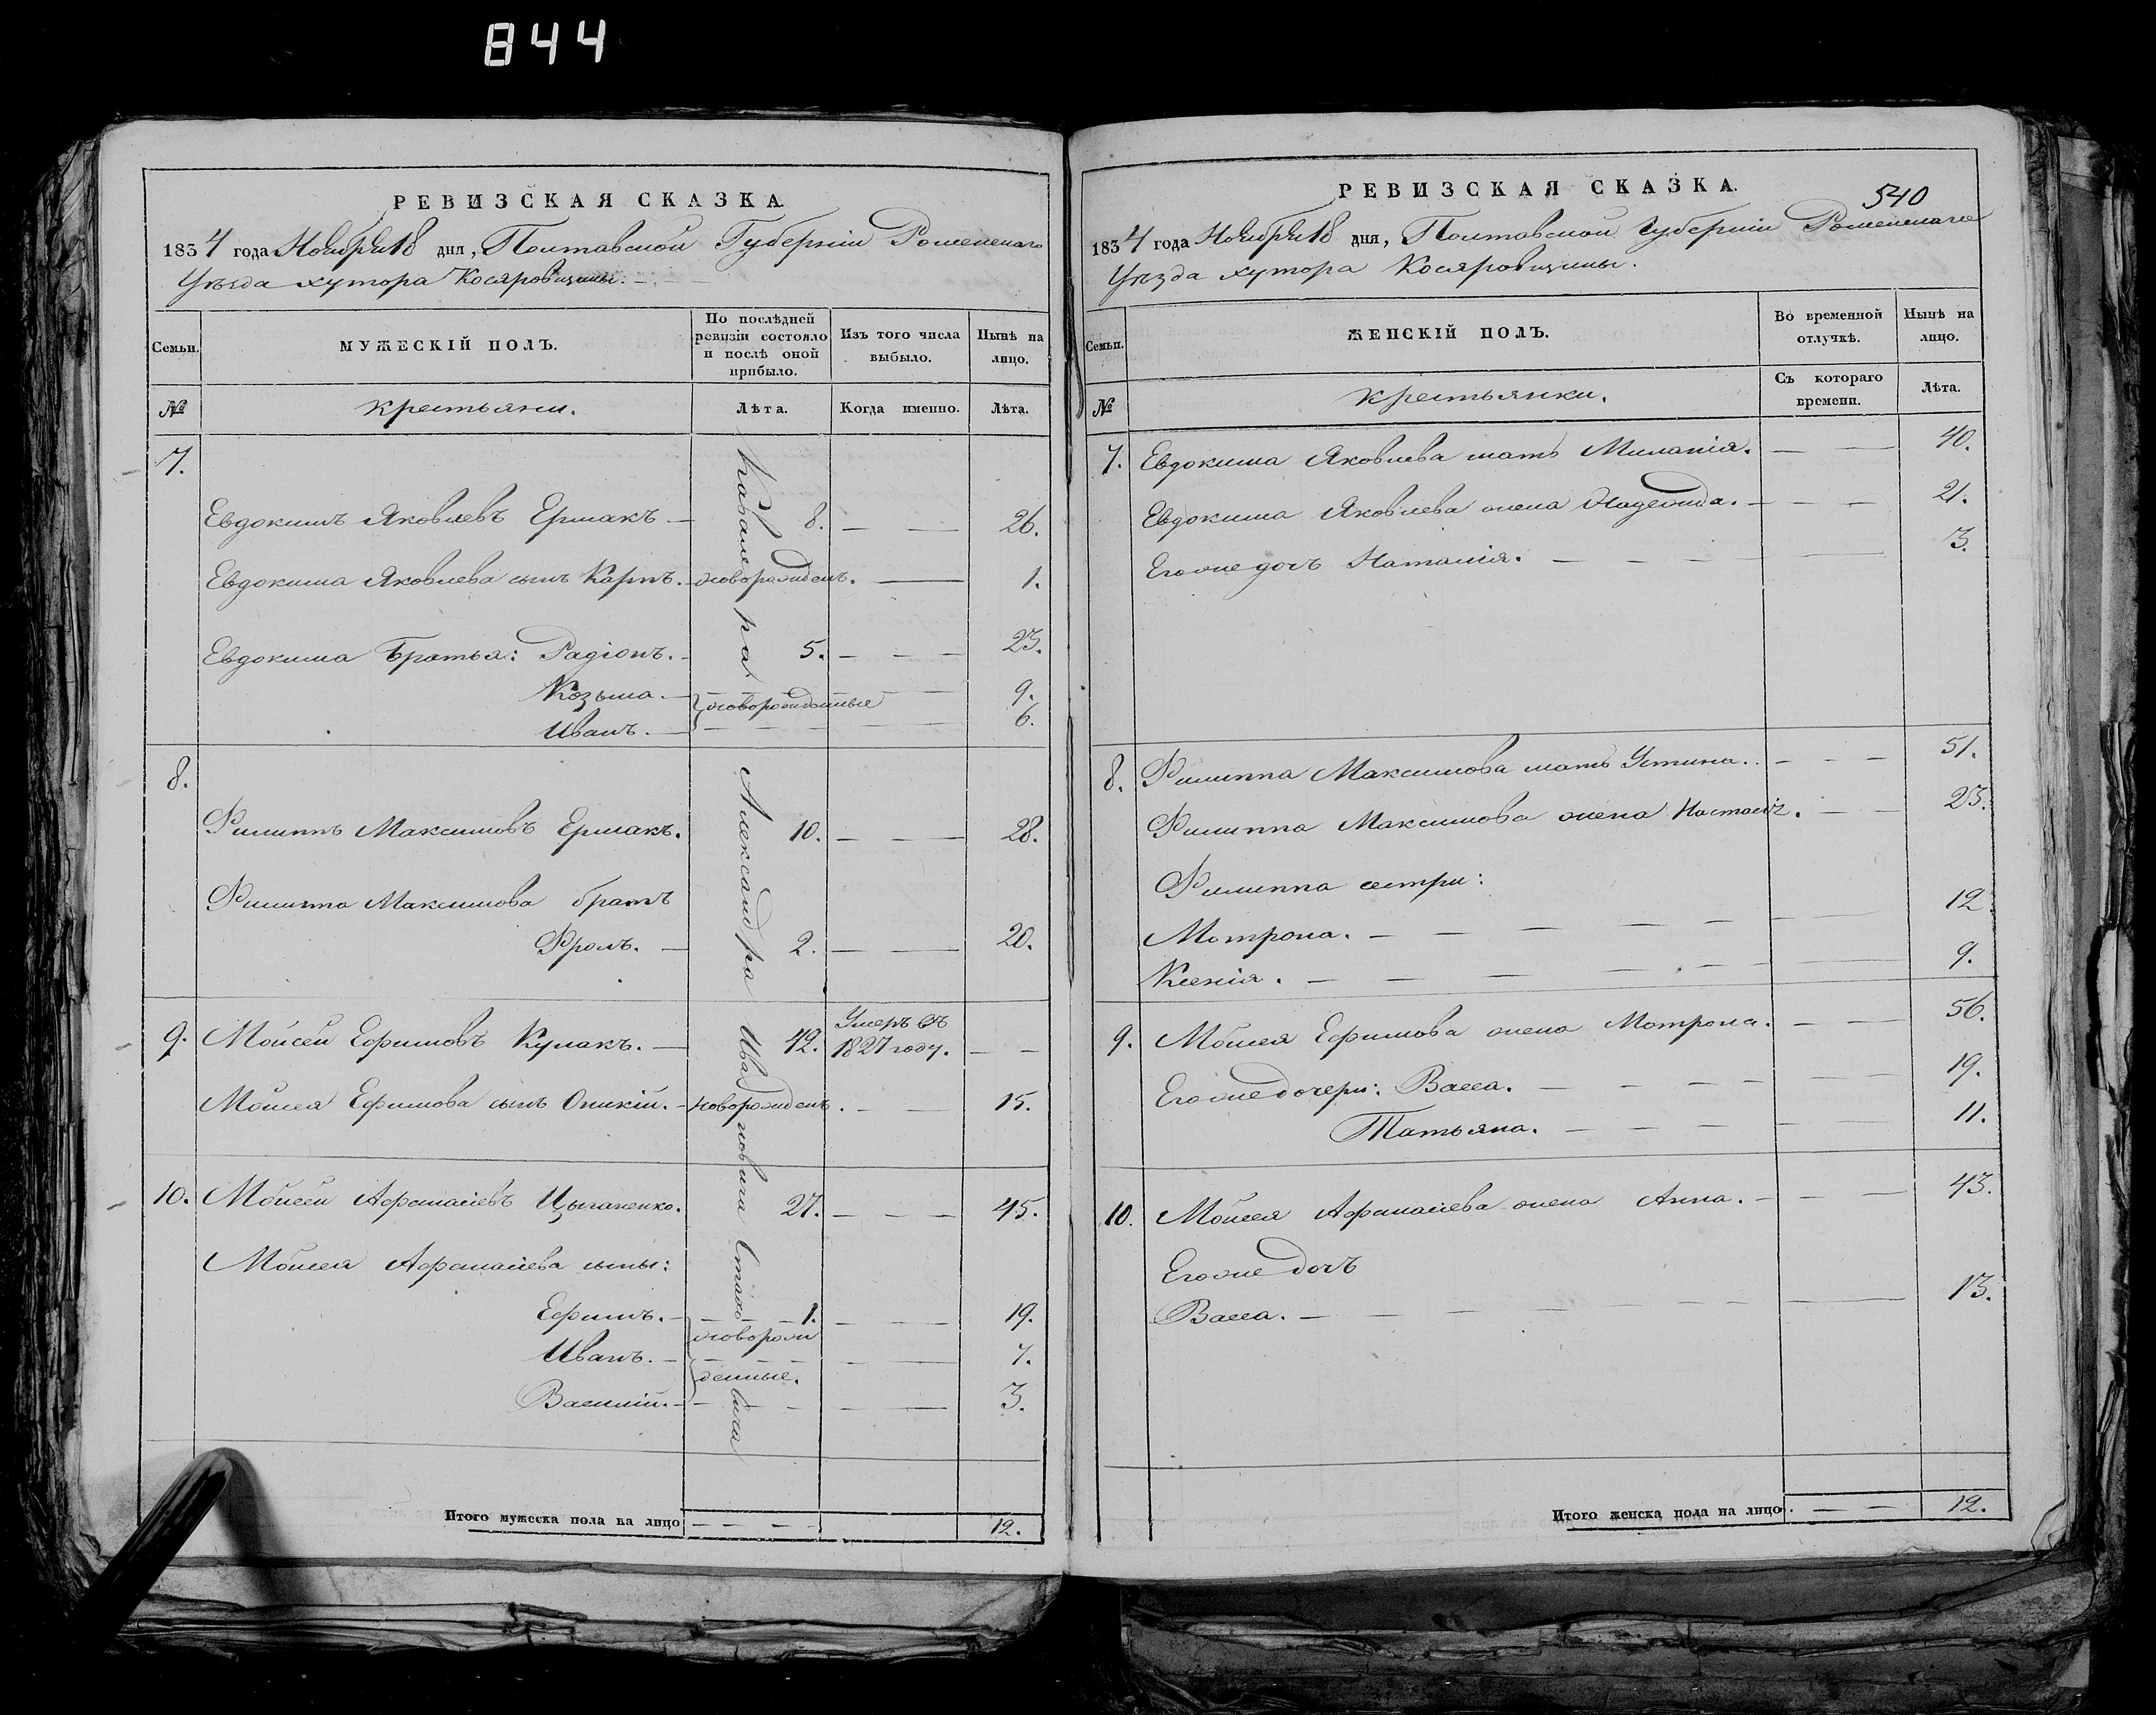 844
РЕВИЗСКАЯ СКАЗКА
1834 года Ноября 18 дня, Полтавской Губерніи Роменскаго
Уѣзда хутора Косяровщины.
Семьи.
МУЖЕСКІЙ ПОЛЪ.
По послѣдней ревизіи состояло и послѣ оной прибыло.
Изъ того числа выбыло.
Нынѣ на лицо.
№
крестьяни.
Лѣта.
Когда именно.
Лѣта.
7.
Евдокимъ Яковлевъ Ермакъ. 8. 26.
Евдокима Яковлева сынъ Карпъ. новорожденъ. 1.
Евдокима братья: Радіонъ. 5. 23.
Козьма. 9.
новорожденные
Иванъ. 6.
8.
Филиппъ Максимовъ Ермакъ. 10. 28.
Филиппа Максимова братъ
Фролъ. 2. 20.
9. Мойсей Ефимовъ Кулакъ. 42. Умеръ въ 1827 году.
Мойсея Ефимова сынъ Оникій. новорожденъ. 15.
10. Мойсей Афанасіевъ Цыганенко. 27. 45.
Мойсея Афанасіева сыны:
Ефимъ. 1. 19.
новорож
Иванъ. 7.
денные.
Василій. 3.
Александра Ивановича
Итого мужеска пола на лицо 12.
РЕВИЗСКАЯ СКАЗКА.
540
1834 года Ноября 18 дня, Полтавской Губерніи Роменскаго
Уѣзда хутора Косяровщины.
Семьи.
ЖЕНСКІЙ ПОЛЪ.
Во временной отлучкѣ.
Нынѣ на лицо.
№
крестьянки.
Съ котораго времени.
Лѣта.
7. Евдокима Яковлева мать Миланія. 40.
Евдокима Яковлева жена Надежда. 21.
Егоже дочь Наталія. 3.
8. Филиппа Максимова мать Устина. 51.
Филиппа Максимова жена Настасія. 23.
Филиппа сестри:
Мотрона. 12
Ксенія. 9.
9. Мойсея Ефимова жена Мотрона. 56.
Егоже дочери: Васса. 19.
Татьяна. 11.
10. Мойсея Афанасіева жена Анна. 43.
Егоже дочь
Васса. 13.
Итого женска пола на лицо. 12.